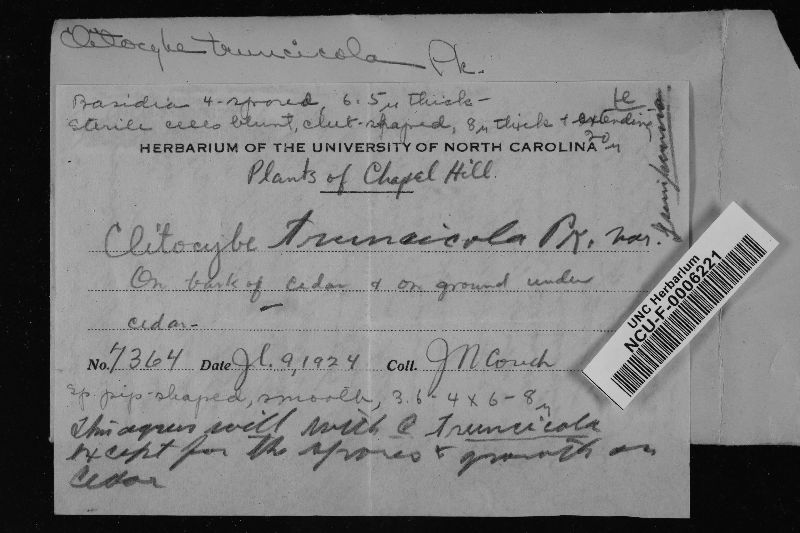 Clitocybe truncicola Pk.
Basidia 4-spored, 6.5µ thick -
Sterile cells blunt, club-shaped, 8µ thick + extending
30µ
HERBARIUM OF THE UNIVERSITY OF NORTH CAROLINA
Plants of Chapel Hill.
Clitocybe truncicola Pk. var.
On bark of cedar & on ground under
cedar-
No. 7364 Date Jl. 9, 1924 Coll. J N Couch
Sp. pip-shaped, smooth, 3.6-4 x 6-8µ
This agrees well with C truncicola
except for the spores & growth on
Cedar
UNC Herbarium
NCU-F-0006221